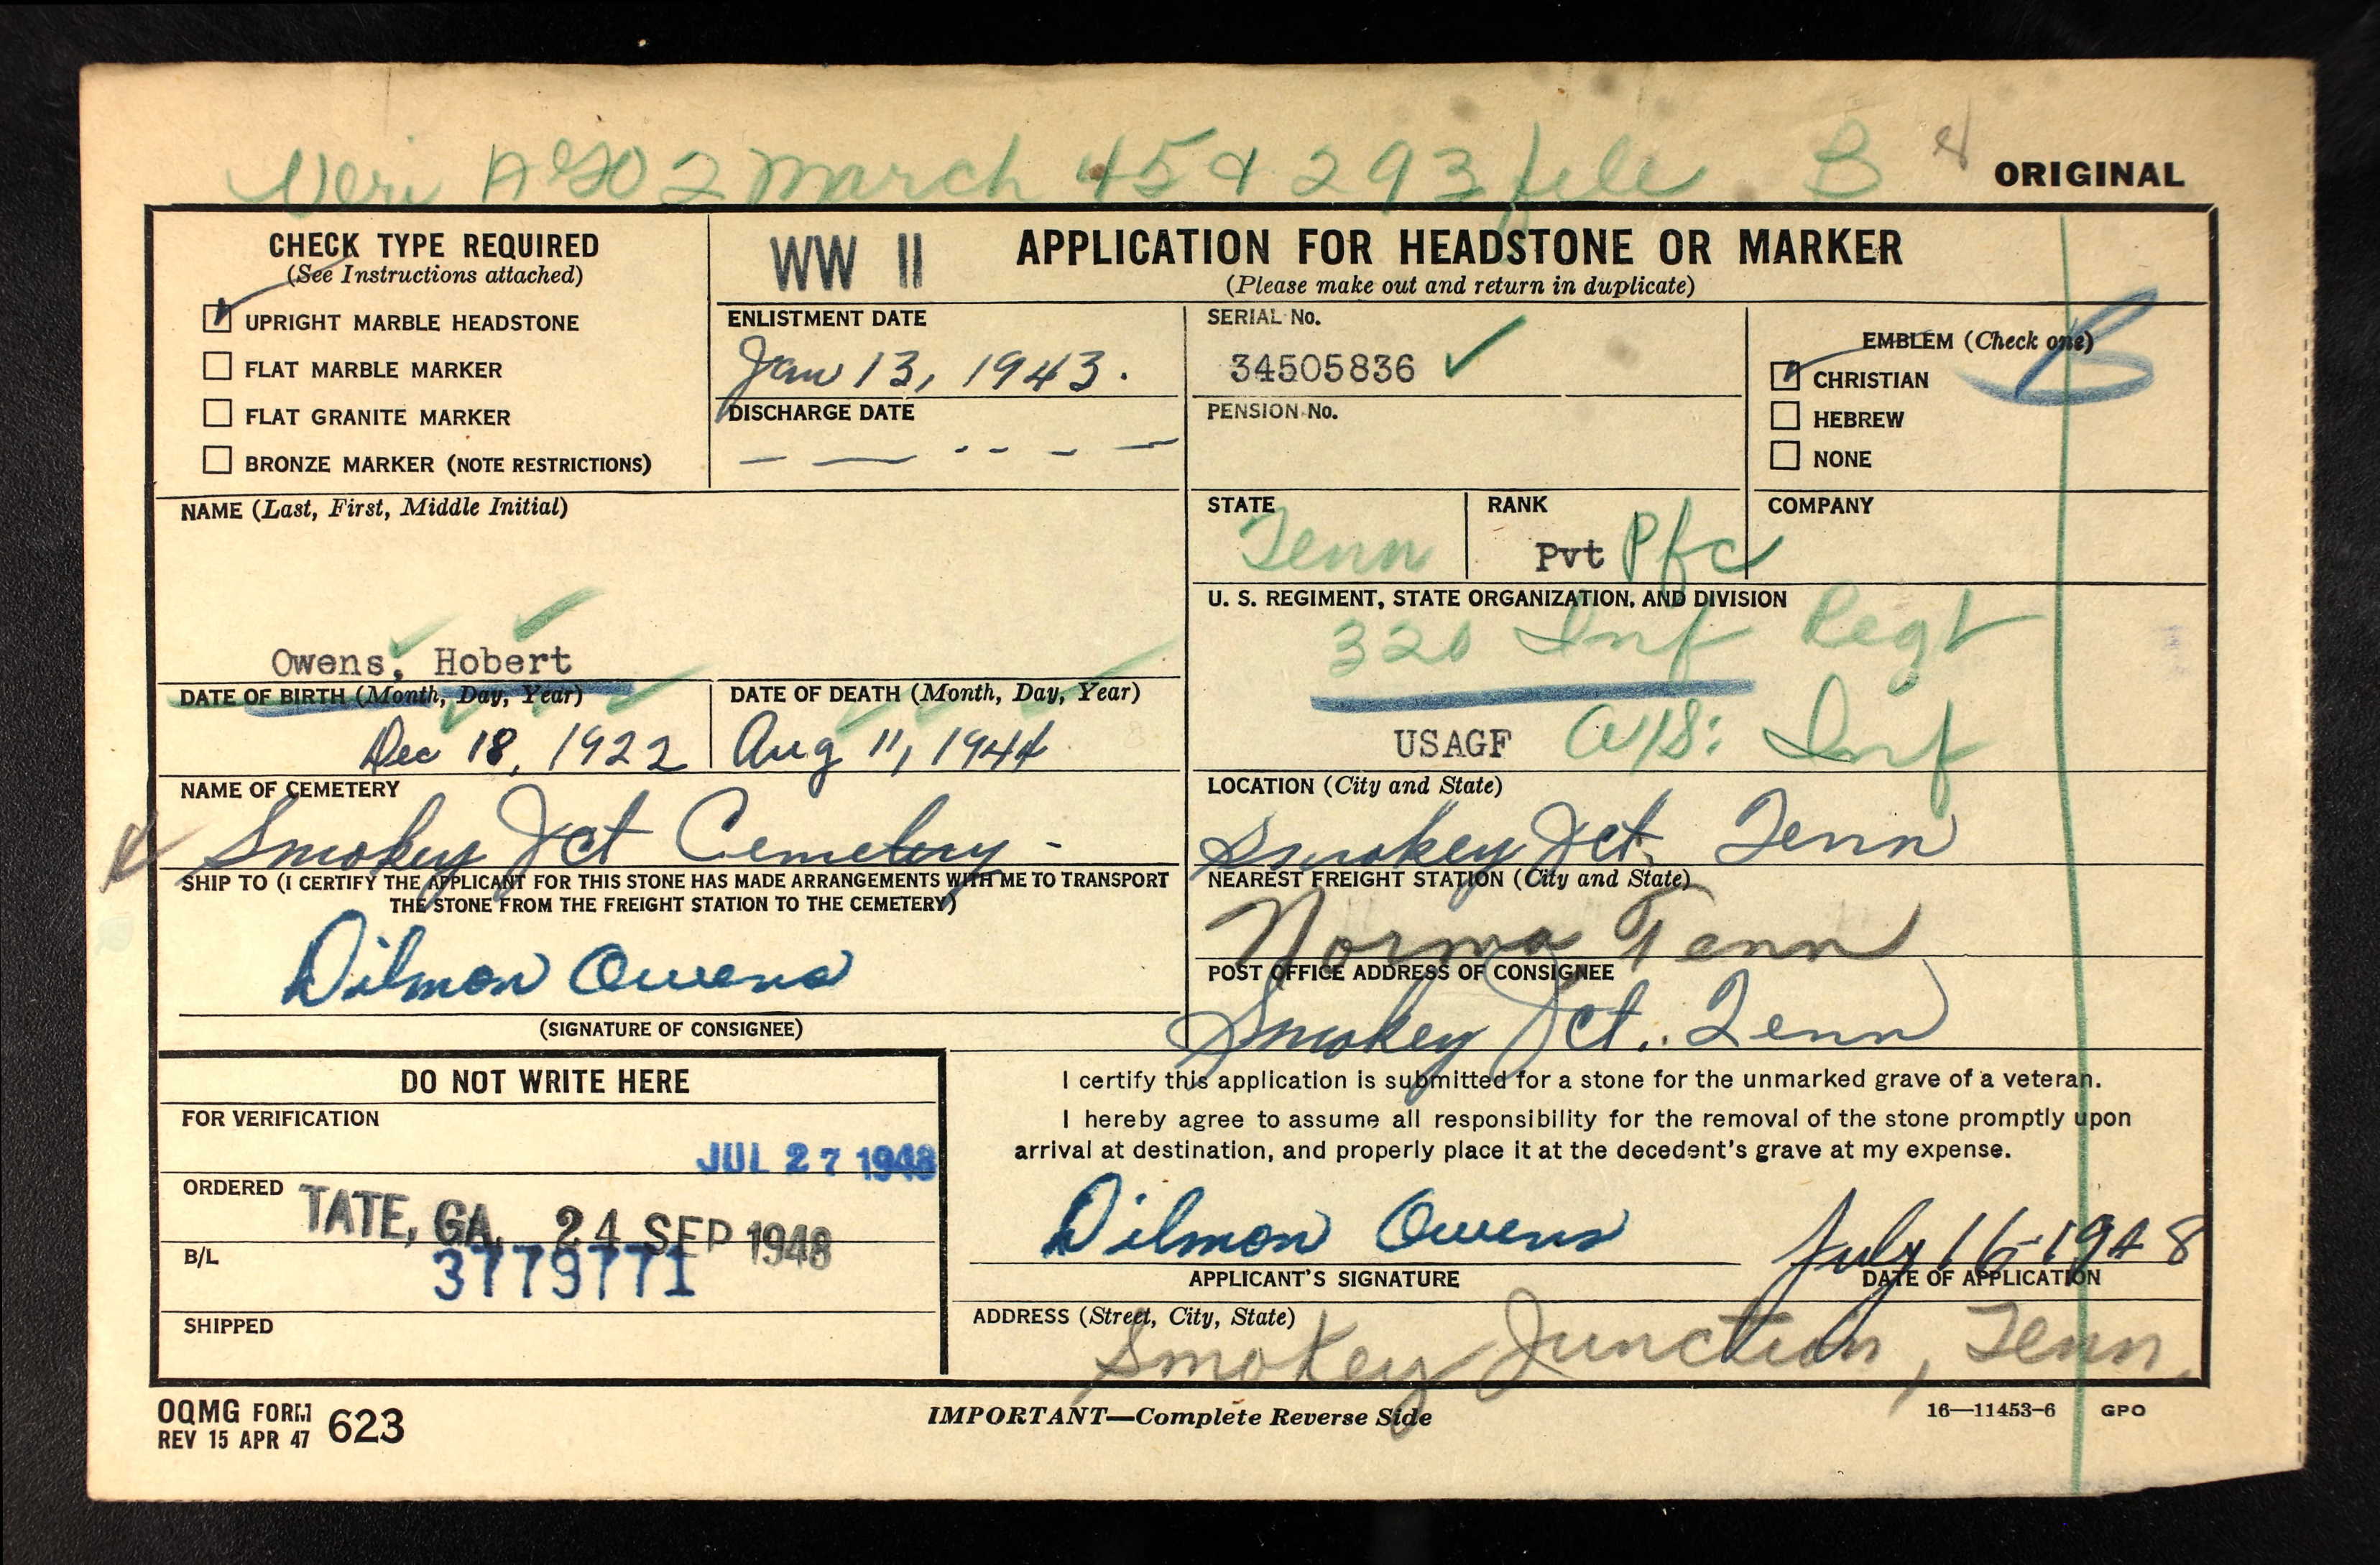 Veri AGO 2 March 45 & 293 file B
ORIGINAL
CHECK TYPE REQUIRED
(See Instructions attached)
UPRIGHT MARBLE HEADSTONE
FLAT MARBLE MARKER
FLAT GRANITE MARKER
BRONZE MARKER (NOTE RESTRICTIONS)
WW II
APPLICATION FOR HEADSTONE OR MARKER
(Please make out and return in duplicate)
ENLISTMENT DATE
Jan 13, 1943.
DISCHARGE DATE
SERIAL No.
34505836
PENSION No.
EMBLEM (Check one)
CHRISTIAN
HEBREW
NONE
NAME (Last, First, Middle Initial)
Owens, Hobert
STATE
Tenn
RANK
Pvt Pfc
COMPANY
U. S. REGIMENT, STATE ORGANIZATION, AND DIVISION
320 Inf Regt
USAGF A/S: Inf
DATE OF BIRTH (Month, Day, Year)
Dec 18, 1922
DATE OF DEATH (Month, Day, Year)
Aug 11, 1944
NAME OF CEMETERY
Smokey Jct Cemetery -
LOCATION (City and State)
Smokey Jct, Tenn
SHIP TO (I CERTIFY THE APPLICANT FOR THIS STONE HAS MADE ARRANGEMENTS WITH ME TO TRANSPORT
THE STONE FROM THE FREIGHT STATION TO THE CEMETERY)
Dilmon Owens
(SIGNATURE OF CONSIGNEE)
NEAREST FREIGHT STATION (City and State)
Norma Tenn
POST OFFICE ADDRESS OF CONSIGNEE
Smokey Jct. Tenn
DO NOT WRITE HERE
FOR VERIFICATION
JUL 27 1948
ORDERED
TATE, GA. 24 SEP 1948
B/L
3779771
SHIPPED
I certify this application is submitted for a stone for the unmarked grave of a veteran.
I hereby agree to assume all responsibility for the removal of the stone promptly upon
arrival at destination, and properly place it at the decedent's grave at my expense.
Dilmon Owens
July 16-1948
APPLICANT'S SIGNATURE
DATE OF APPLICATION
ADDRESS (Street, City, State)
Smokey Junction, Tenn.
OQMG FORM 623
REV 15 APR 47
IMPORTANT—Complete Reverse Side
16—11453-6 GPO